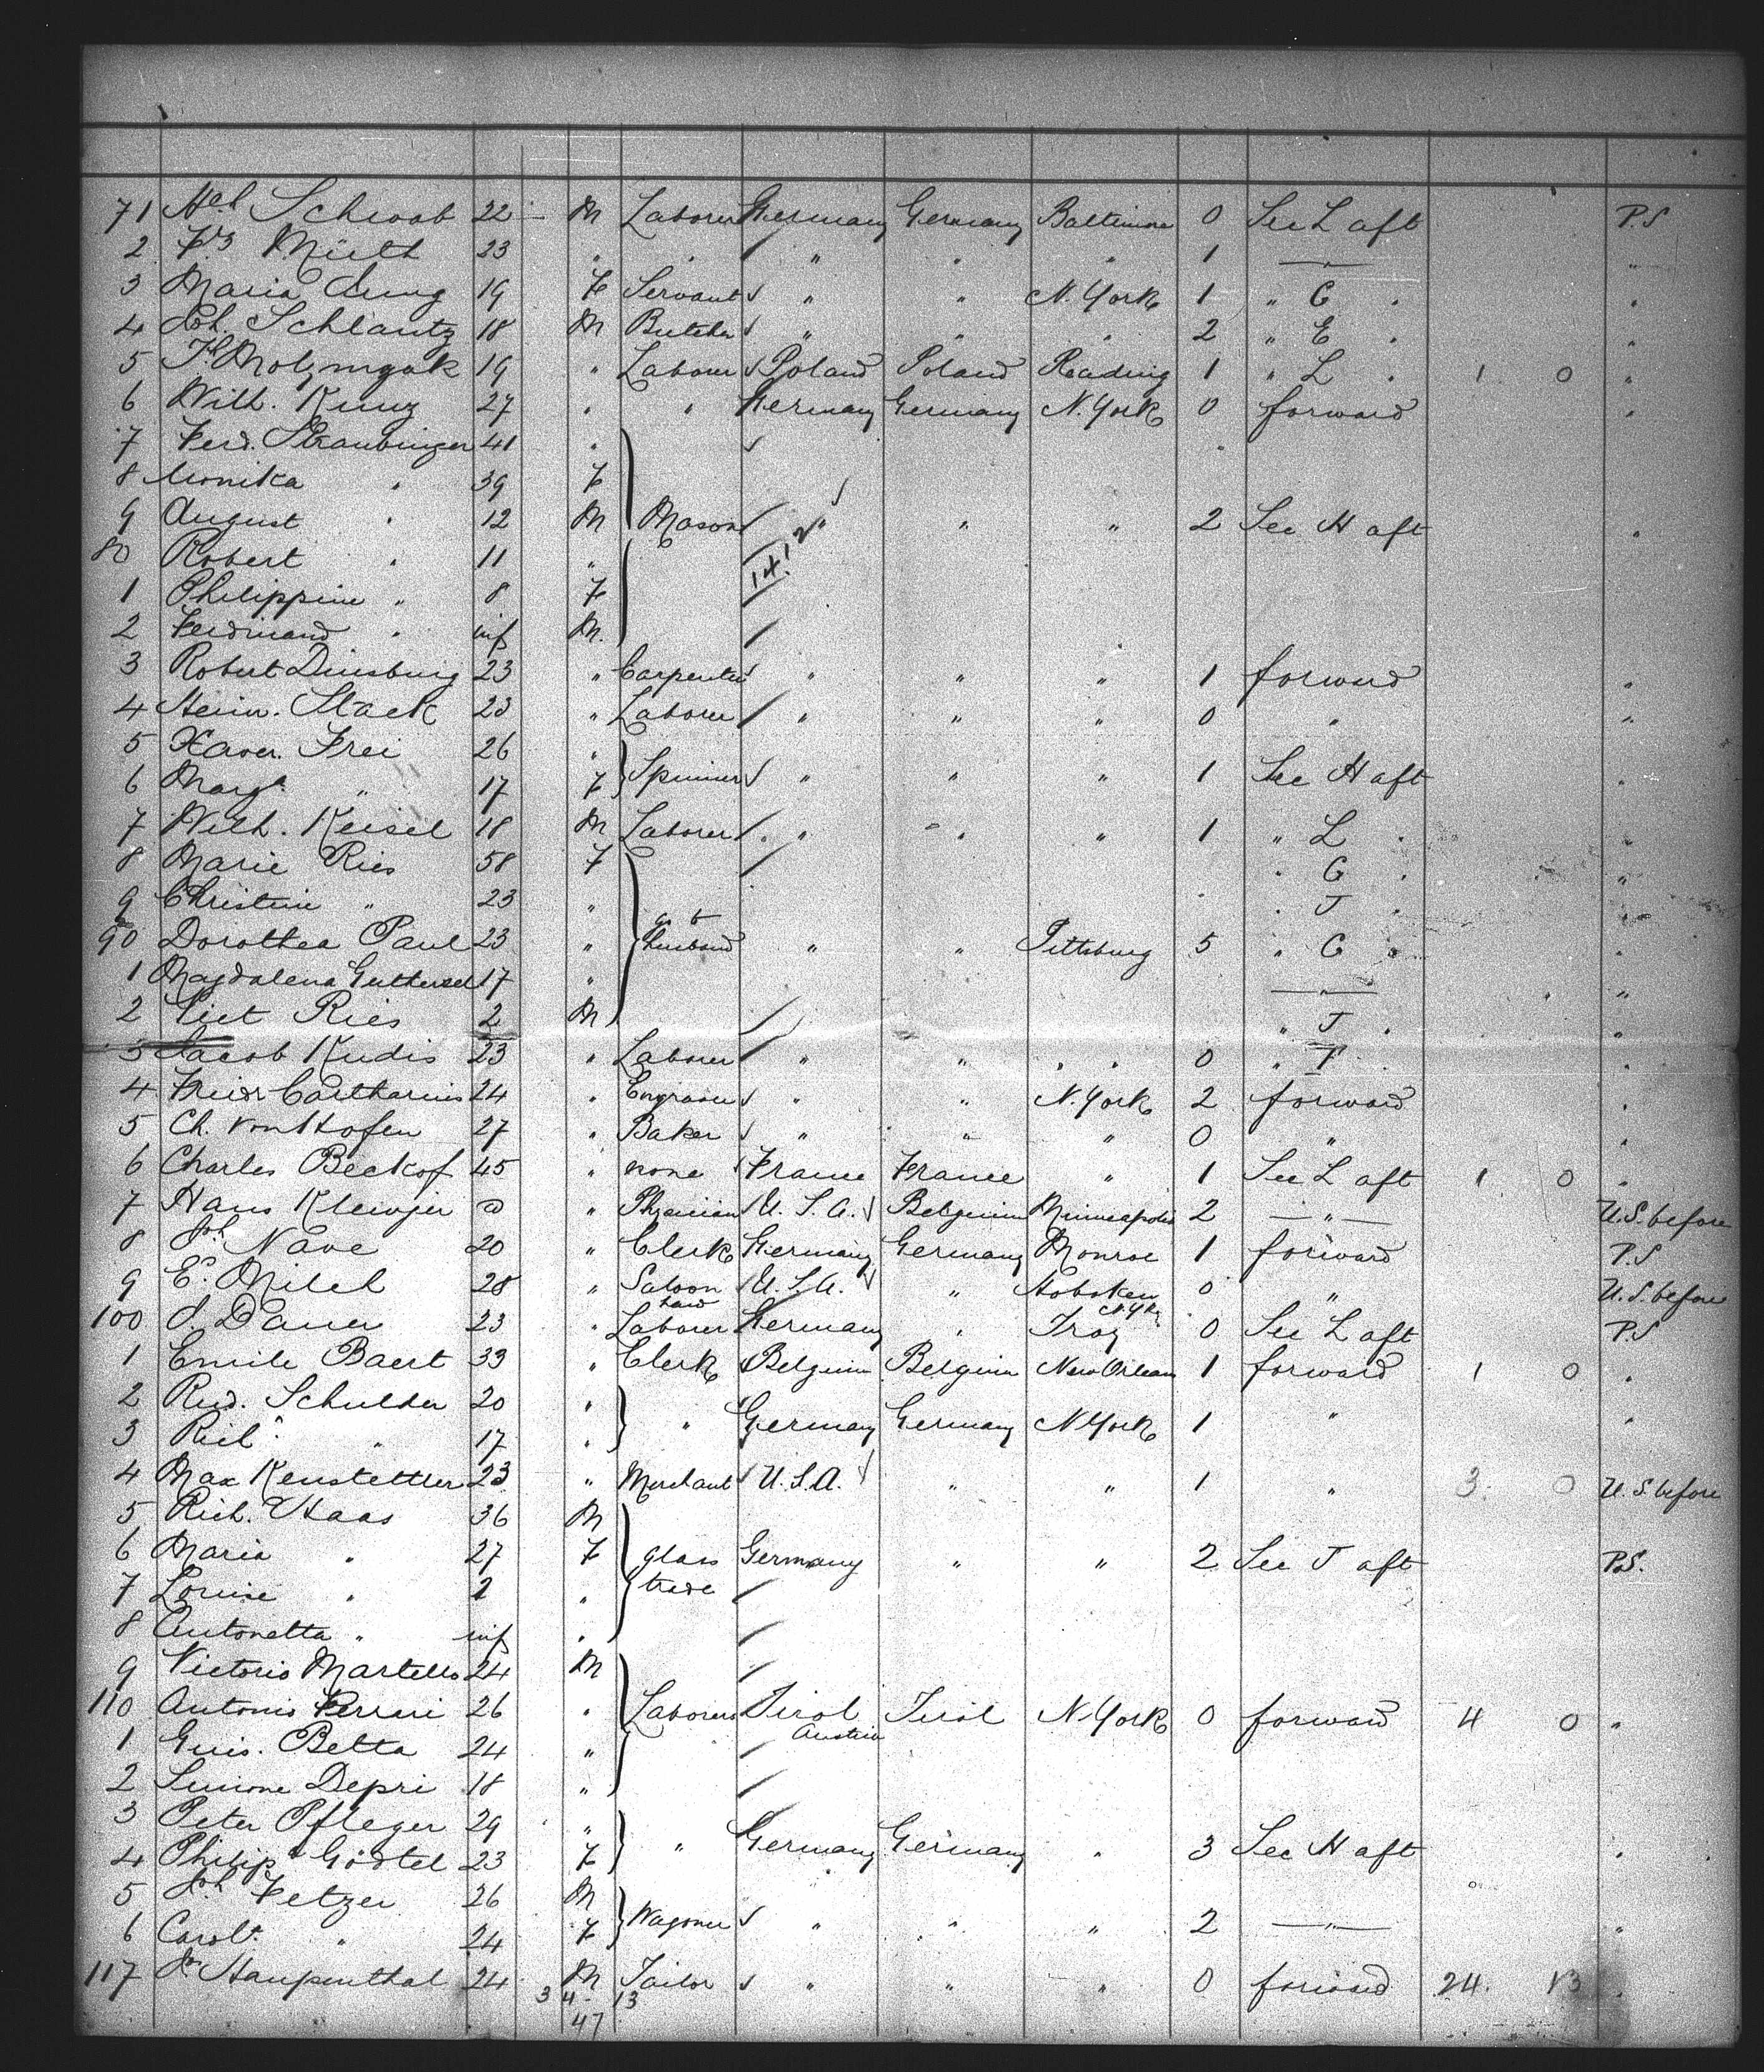 71 Schwab 22 M Laborer Germany Germany Baltimore 0 Sec L aft P.S
2 23 " " " " " 1 — " — "
3 Maria 19 F Servant " " N. York 1 " G " "
4 Joh. Schlantz 18 M Butcher " " " 2 " E " "
5 19 " Laborer Poland Poland Reading 1 " L " 1 0 "
6 Wilh. Kunz 27 " " Germany Germany N. York 0 forward "
7 Ferd. Straubinger 41 "
8 Monika " 39 F
9 August " 12 M Mason " " " 2 Sec H aft "
80 Robert " 11 "
1 Philippine " 8 F
2 Ferdinand " inf M.
3 Robert Duisburg 23 " Carpenter " " " 1 forward "
4 Heinr. Stack 23 " Laborer " " " 0 " "
5 Xaver Frei 26 "
6 Marg. " 17 F Spinner " " " 1 Sec H aft "
7 Wilh. Keisel 18 M Laborer " " " 1 " L " "
8 Marie Ries 58 F " G " "
9 Christine " 23 " " J " "
90 Dorothea Paul 23 " go to husband " " Pittsburg 5 " G " "
1 Magdalena 17 " — " — "
2 Ries 2 M " J " "
3 Jacob Kudis 23 " Laborer " " " 0 " F "
4 Friedr Cartharius 24 " Engraver " " N. York 2 forward "
5 Ch. vonHofen 27 " Baker " " " 0 " "
6 Charles Beckof 45 " none France France " 1 Sec L aft 1 0 "
7 Hans " Physician U. S. A. Belgium Minneapolis 2 — " — U.S. before
8 Nave 20 " Clerk Germany Germany Monroe 1 forward P.S
9 E. Milch 28 " Saloon U. S. A. " Hoboken 0 " U.S. before
100 J. Dauer 23 " Laborer Germany " Troy N.Y. 0 Sec L aft P.S
1 Emile Baert 33 " Clerk Belgium Belgium New Orleans 1 forward 1 0 "
2 Rud. Schulder 20 "
3 " 17 " " Germany Germany N York 1 " "
4 Max Kenstettler 23 " Merchant U. S. A. " " 1 " 3 0 U. S. before
5 Rich. Haas 36 M
6 Maria " 27 F glass Germany " " 2 Sec J aft P.S.
7 Louise " 2 " trade
8 Antonetta " inf "
9 Victorio Martello 24 M
110 Antonio Ferrari 26 " Laborers Tirol Tirol N. York 0 forward 4 0 "
Austria
1 Guis. Betta 24 "
2 Simone Depri 18 "
3 Peter Pfleger 29 "
4 Philip Gödtel 23 F " Germany Germany " 3 Sec H aft "
5 Fetzer 26 M
6 Carolt. " 24 F Wagoner " " " 2 — " — "
117 Haupenthal 24 M Tailor " " " 0 forward 24. 13 "
34 - 13
47